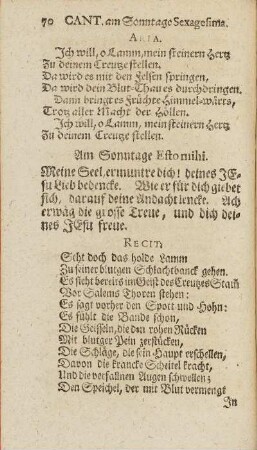 70 CANT. am Sonntage Sexagesima.
ARIA.
Ich will, o Lamm, mein steinern Hertz
Zu deinem Creutze stellen.
Da wird es mit den Felsen springen,
Da wird dein Blut-Thau es durchdringen.
Dann bringt es Früchte Himmel-wärts,
Trotz aller Macht der Höllen.
Ich will, o Lamm, mein steinern Hertz
Zu deinem Creutze stellen.
Am Sonntage Esto mihi.
Meine Seel, ermuntre dich! deines JE-
su Lieb bedencke. Wie er für dich giebet
sich, darauf deine Andacht lencke. Ach
erwäg die grosse Treue, und dich dei-
nes JEsu freue.
RECIT:
Seht doch das holde Lamm
Zu seiner blutgen Schlachtbanck gehen.
Es sieht bereits im Geist des Creutzes Stam̃
Vor Salems Thoren stehen:
Es sagt vorher den Spott und Hohn:
Es fühlt die Bande schon,
Die Geisseln, die den rohen Rücken
Mit blutger Pein zerstücken,
Die Schläge, die sein Haupt erschellen,
Davon die krancke Scheitel kracht,
Und die verfallnen Augen schwellen;
Den Speichel, der mit Blut vermengt
In